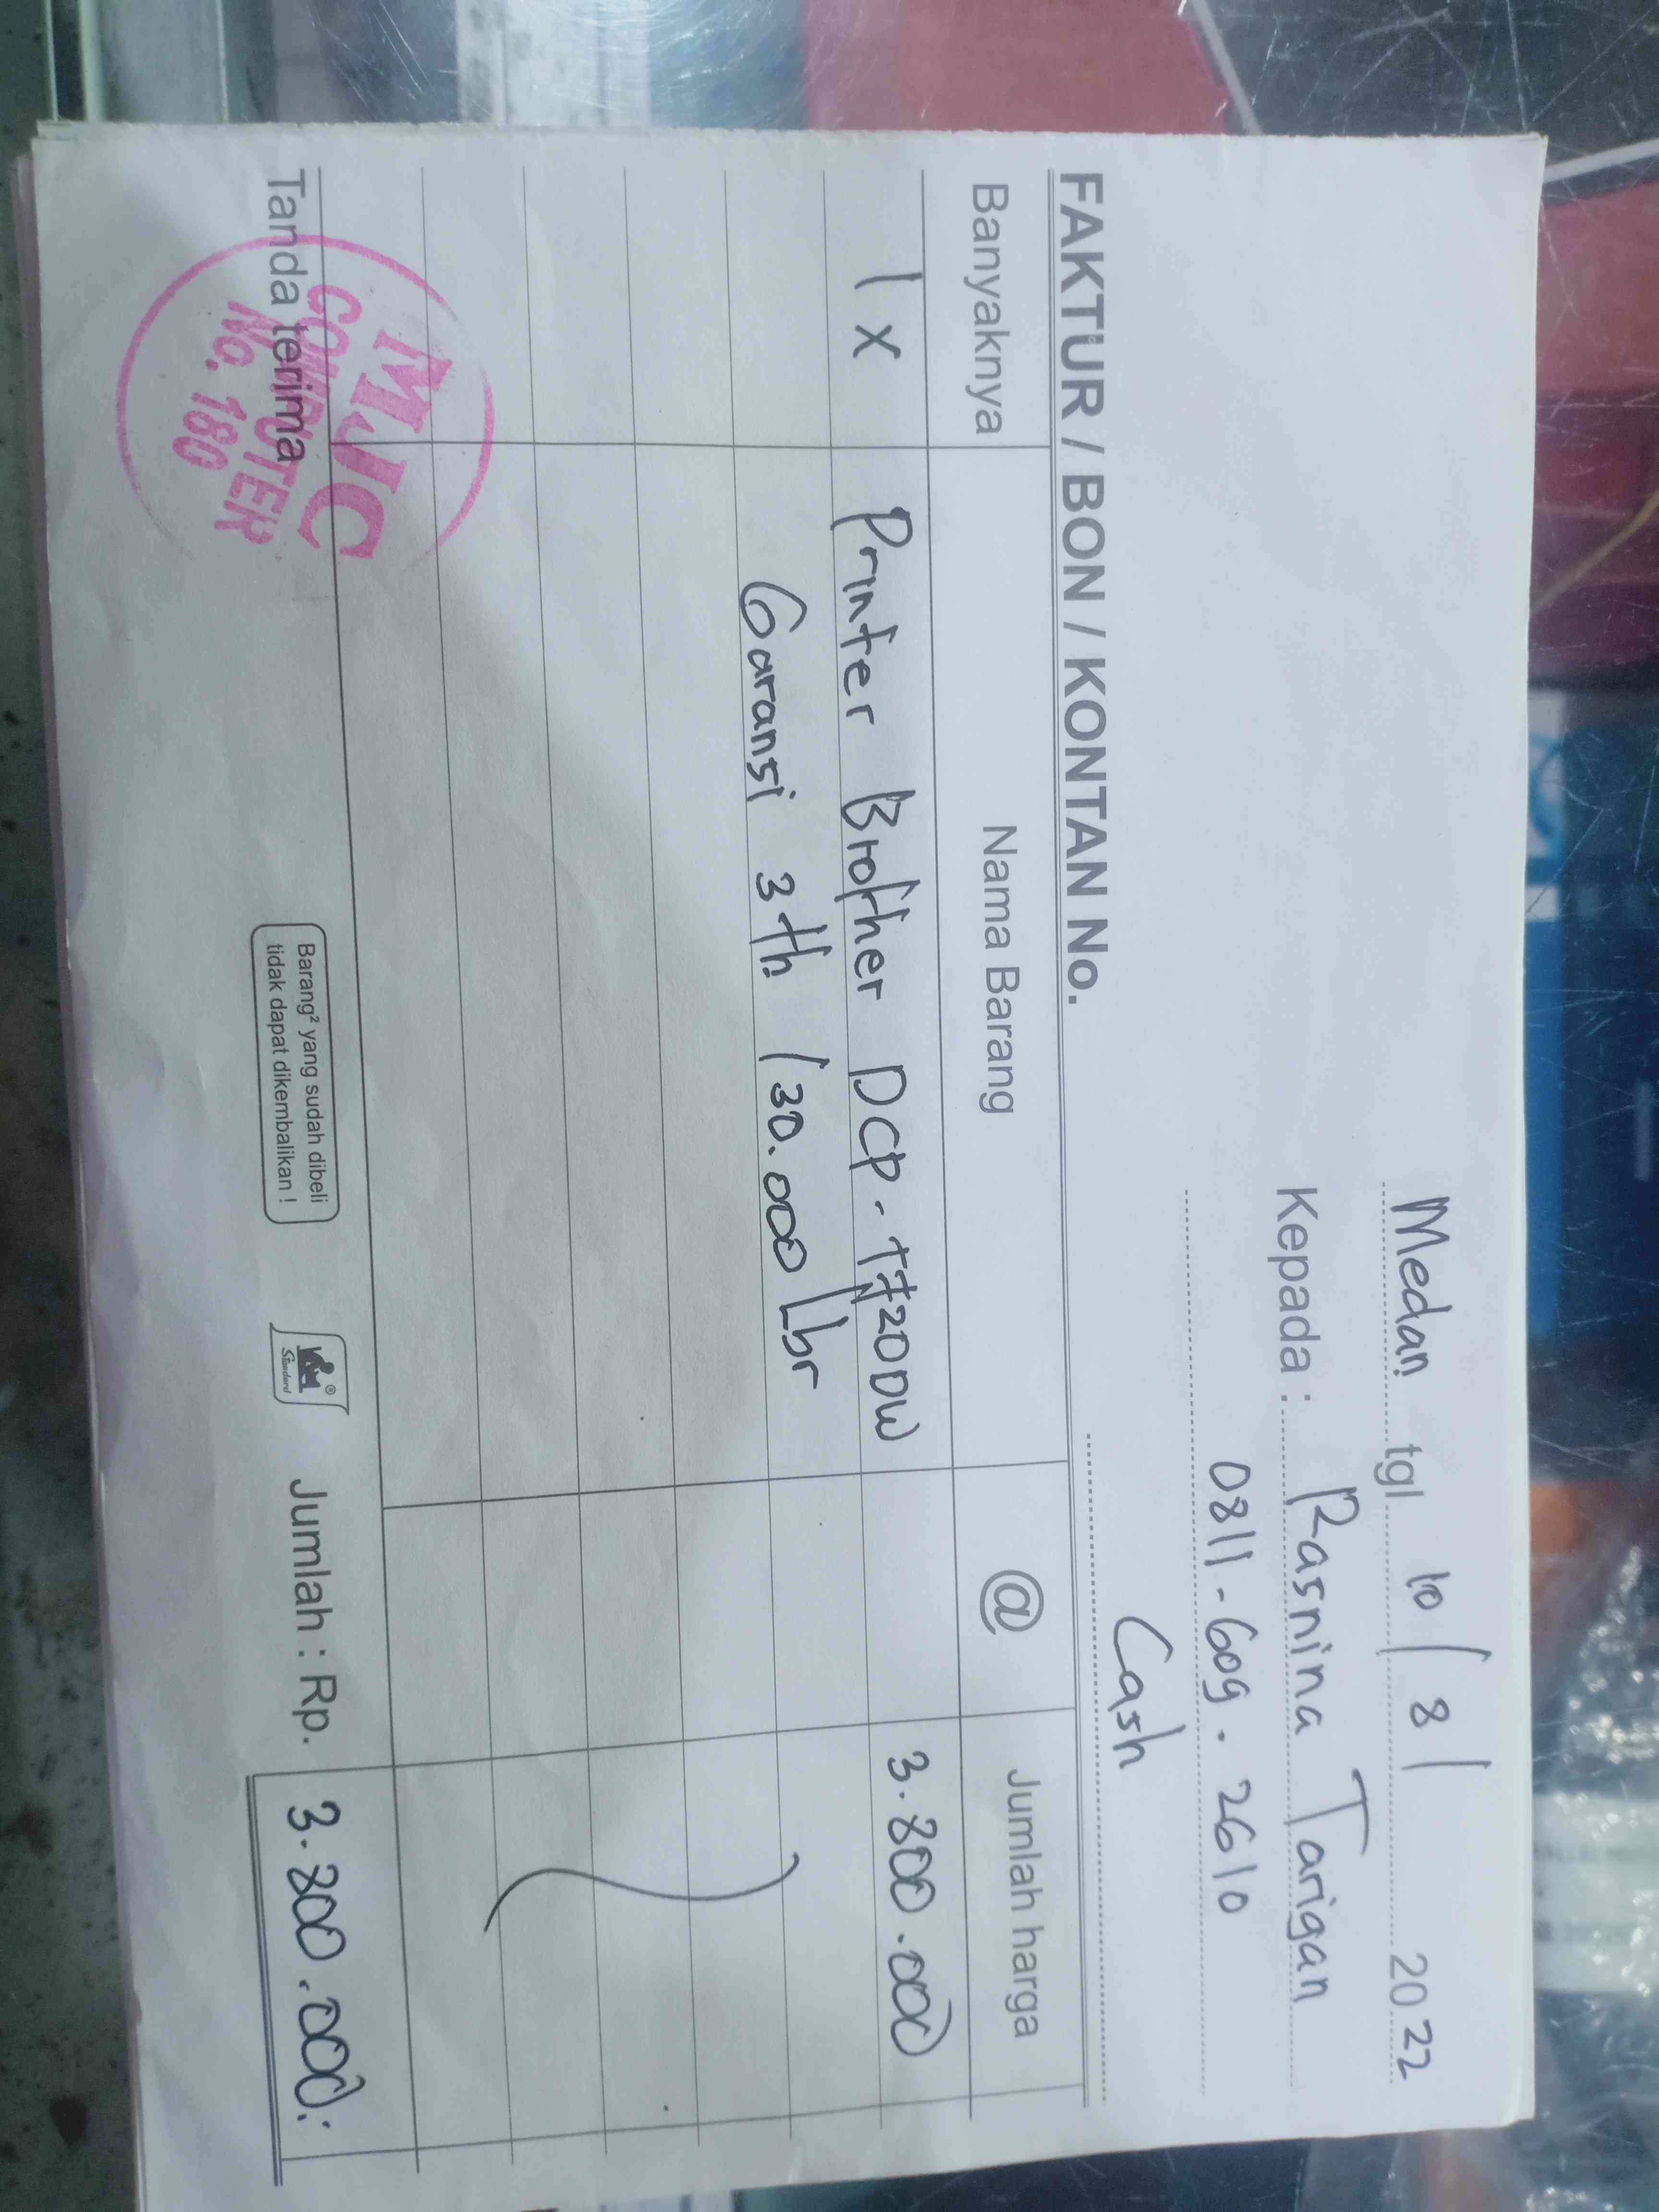 Medan tgl 10 / 8 / 2022
Kepada : Rasnina Tarigan
0811-609.2610
Cash
FAKTUR / BON / KONTAN No.
Banyaknya Nama Barang @ Jumlah harga
1 x Printer Brother DCP-T720DW 3.800.000
Garansi 3 th / 30.000 Lbr
Tanda terima
MJC
COMPUTER
No. 180
Barang² yang sudah dibeli
tidak dapat dikembalikan !
Standard
Jumlah : Rp. 3.800.000.